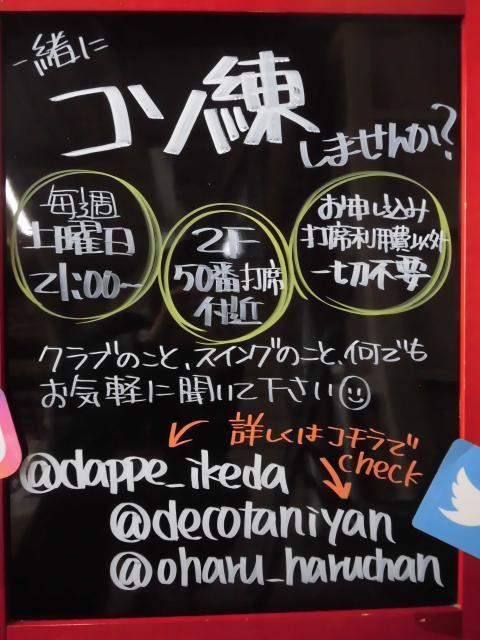 一緒に
コソ練
しませんか?
毎週
土曜日
21:00～
2F
50番打席
付近
お申し込み
打席利用費以外
一切不要
クラブのこと、スイングのこと、何でも
お気軽に聞いて下さい☺
詳しくはコチラで
check
@dappe_ikeda
@decotaniyan
@oharu_haruchan